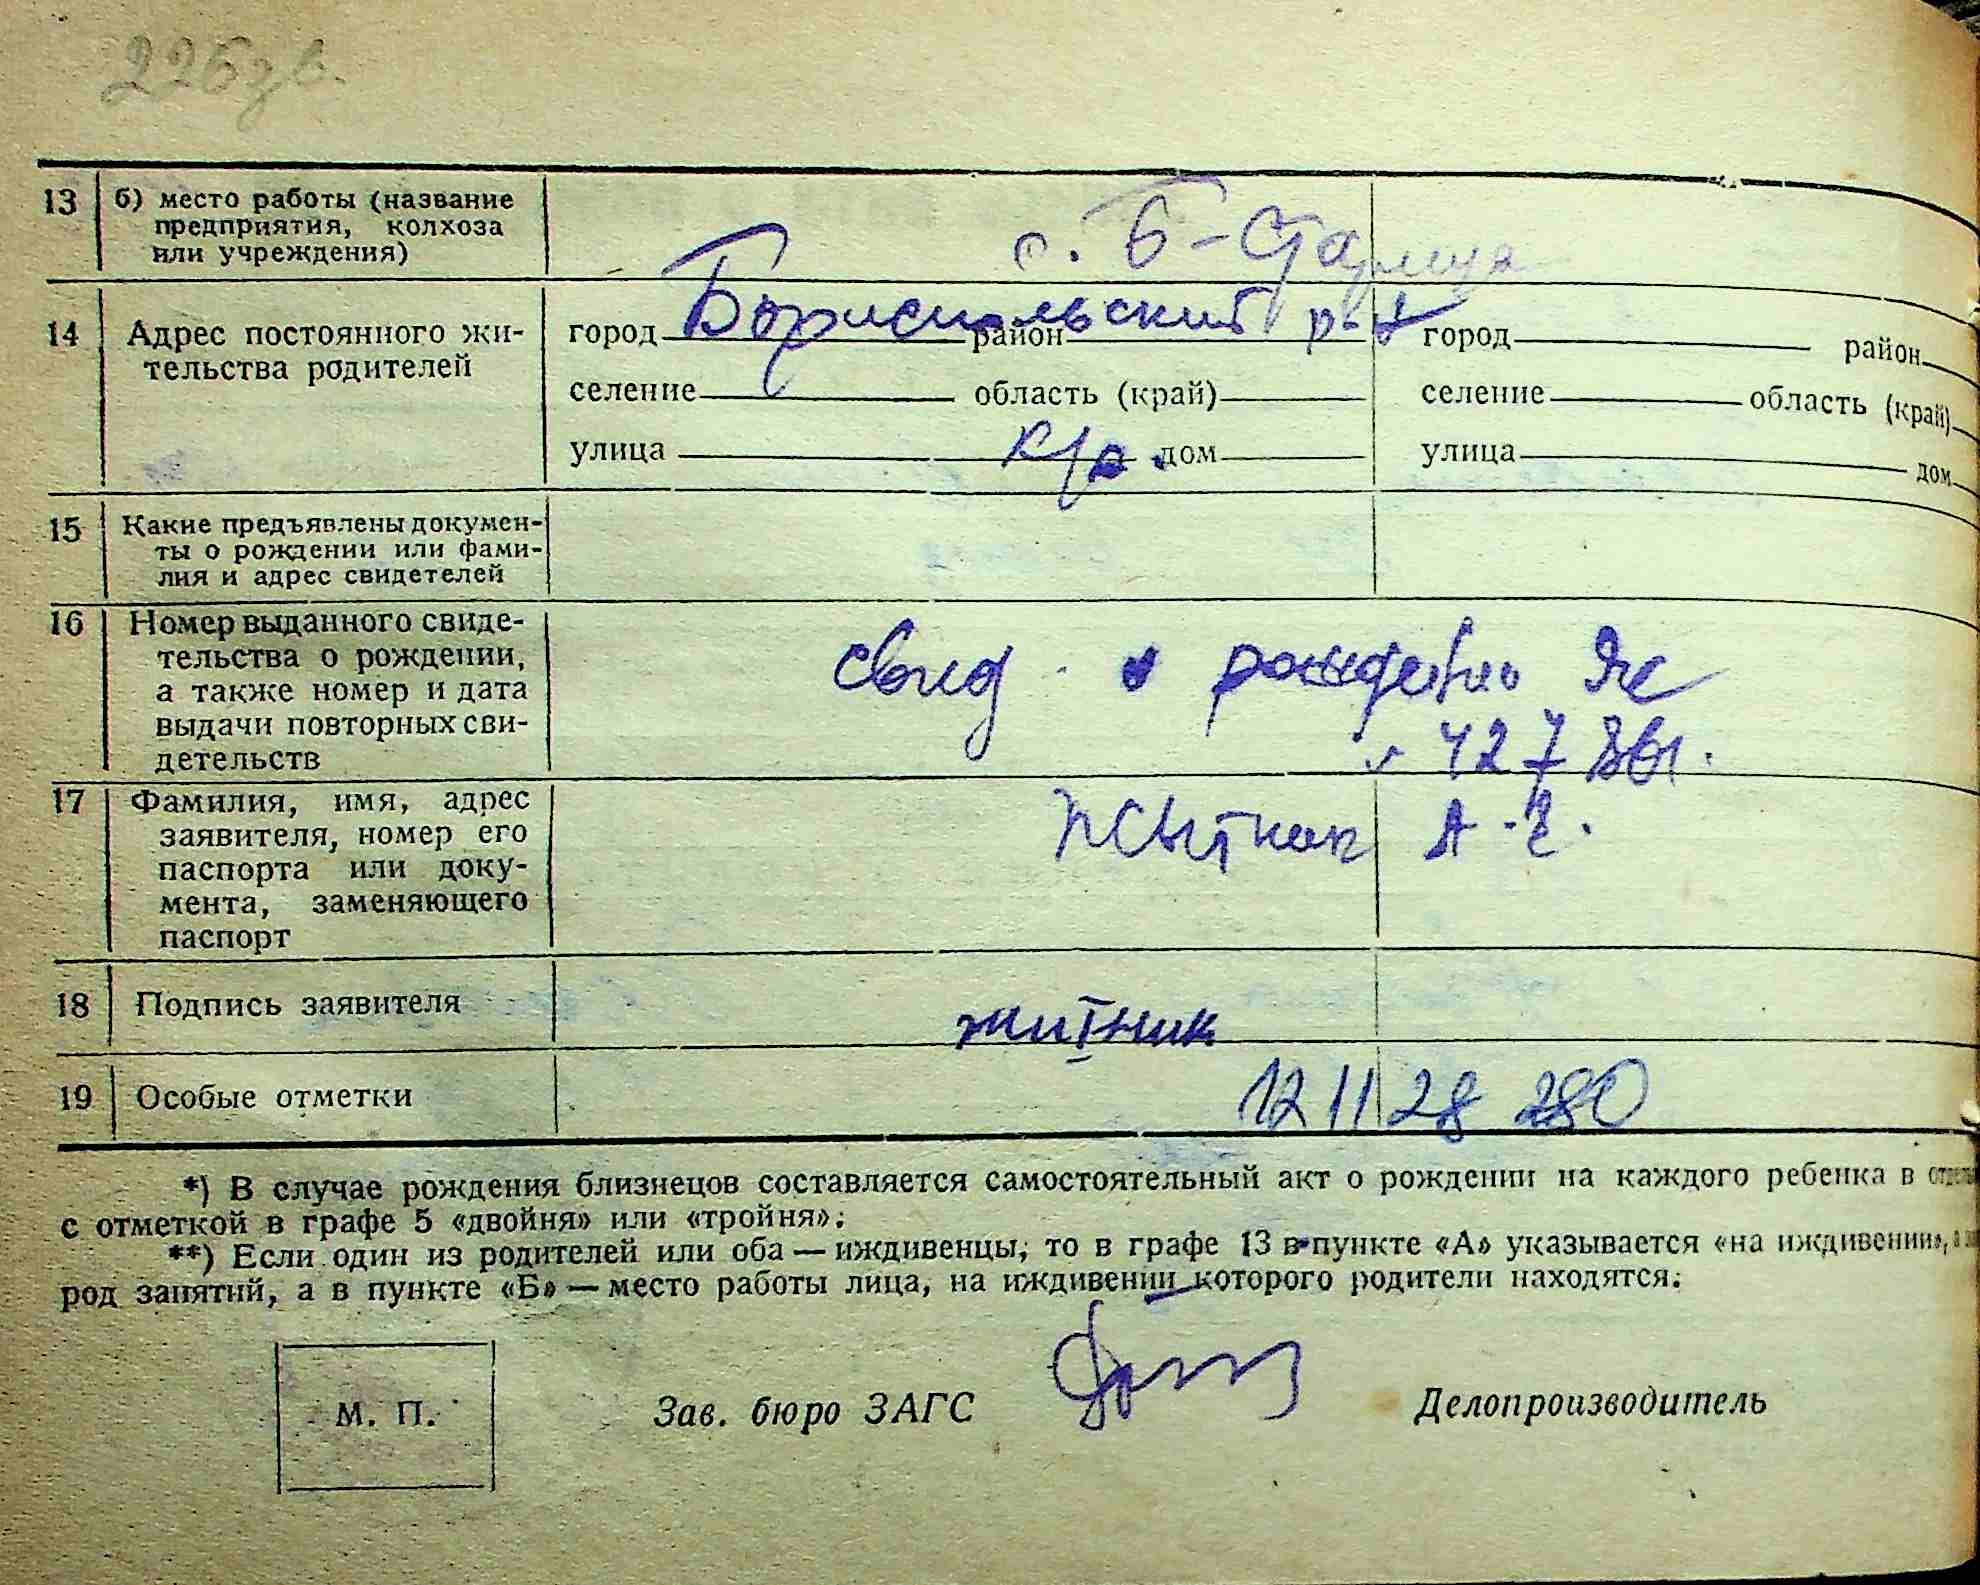 226 зв.
13 б) место работы (название
предприятия, колхоза
или учреждения)
с. Б-Стариця
Бориспольский р-н
14 Адрес постоянного жи-
тельства родителей
город район город район
селение область (край) селение область (край)
улица дом улица дом
15 Какие предъявлены докумен-
ты о рождении или фами-
лия и адрес свидетелей
16 Номер выданного свиде-
тельства о рождении,
а также номер и дата
выдачи повторных сви-
детельств
свид о рождении
17 Фамилия, имя, адрес
заявителя, номер его
паспорта или доку-
мента, заменяющего
паспорт
18 Подпись заявителя
житник
19 Особые отметки
12 11 28 280
*) В случае рождения близнецов составляется самостоятельный акт о рождении на каждого ребенка в
с отметкой в графе 5 «двойня» или «тройня».
**) Если один из родителей или оба — иждивенцы, то в графе 13 в пункте «А» указывается «на иждивении»,
род занятий, а в пункте «Б» — место работы лица, на иждивении которого родители находятся.
М. П.
Зав. бюро ЗАГС Делопроизводитель